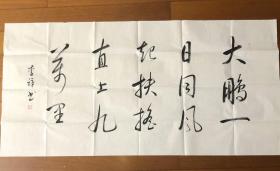 大鹏一
日同风
起扶摇
直上九
万里